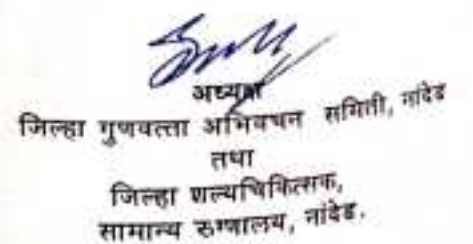 अध्यक्ष
जिल्हा गुणवत्ता अभिवचन समिती, नांदेड
तथा
जिल्हा शल्यचिकित्सक,
सामान्य रुग्णालय, नांदेड.